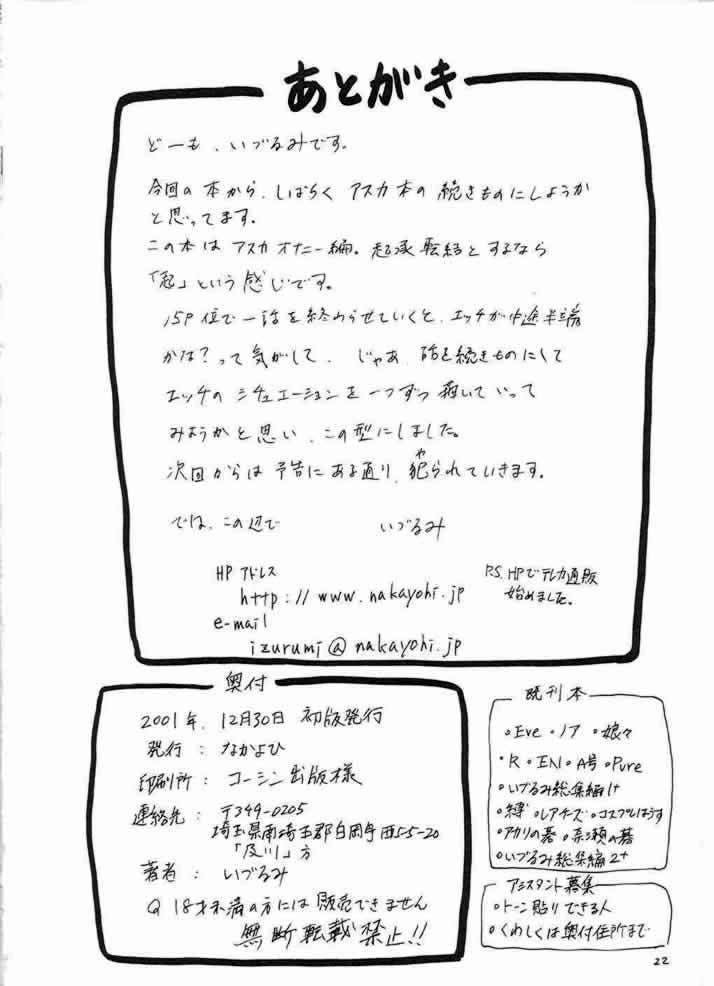 あとがき
どーも、いづるみです。
今回の本から、しばらくアスカ本の続きものにしようか
と思ってます。
この本はアスカオナニー編。起承転結とするなら
「起」という感じです。
15P位で一話を終わらせていくと、エッチが中途半端
かな?って気がして、じゃあ、話を続きものにして
エッチのシチュエーションを一つずつ描いていって
みようかと思い、この型にしました。
次回からは予告にある通り、犯られていきます。
では、この辺で いづるみ
HPアドレス
http://www.nakayohi.jp
e-mail
izurumi@nakayohi.jp
P.S. HPでテレカ通販
始めました。
奥付
2001年、12月30日 初版発行
発行:なかよひ
印刷所:コーシン出版様
連絡先:〒349-0205
埼玉県南埼玉郡白岡町西5-5-20
「及川」方
著者:いづるみ
18才未満の方には販売できません
無断転載禁止!!
既刊本
・Eve ・ノア ・娘々
・R ・EN ・A号 ・Pure
・いづるみ総集編1+
・縛 ・レアチーズ ・コスプレはうす
・アカリの碁 ・奈瀬の碁
・いづるみ総集編2+
アシスタント募集
・トーン貼りできる人
・くわしくは奥付住所まで
22